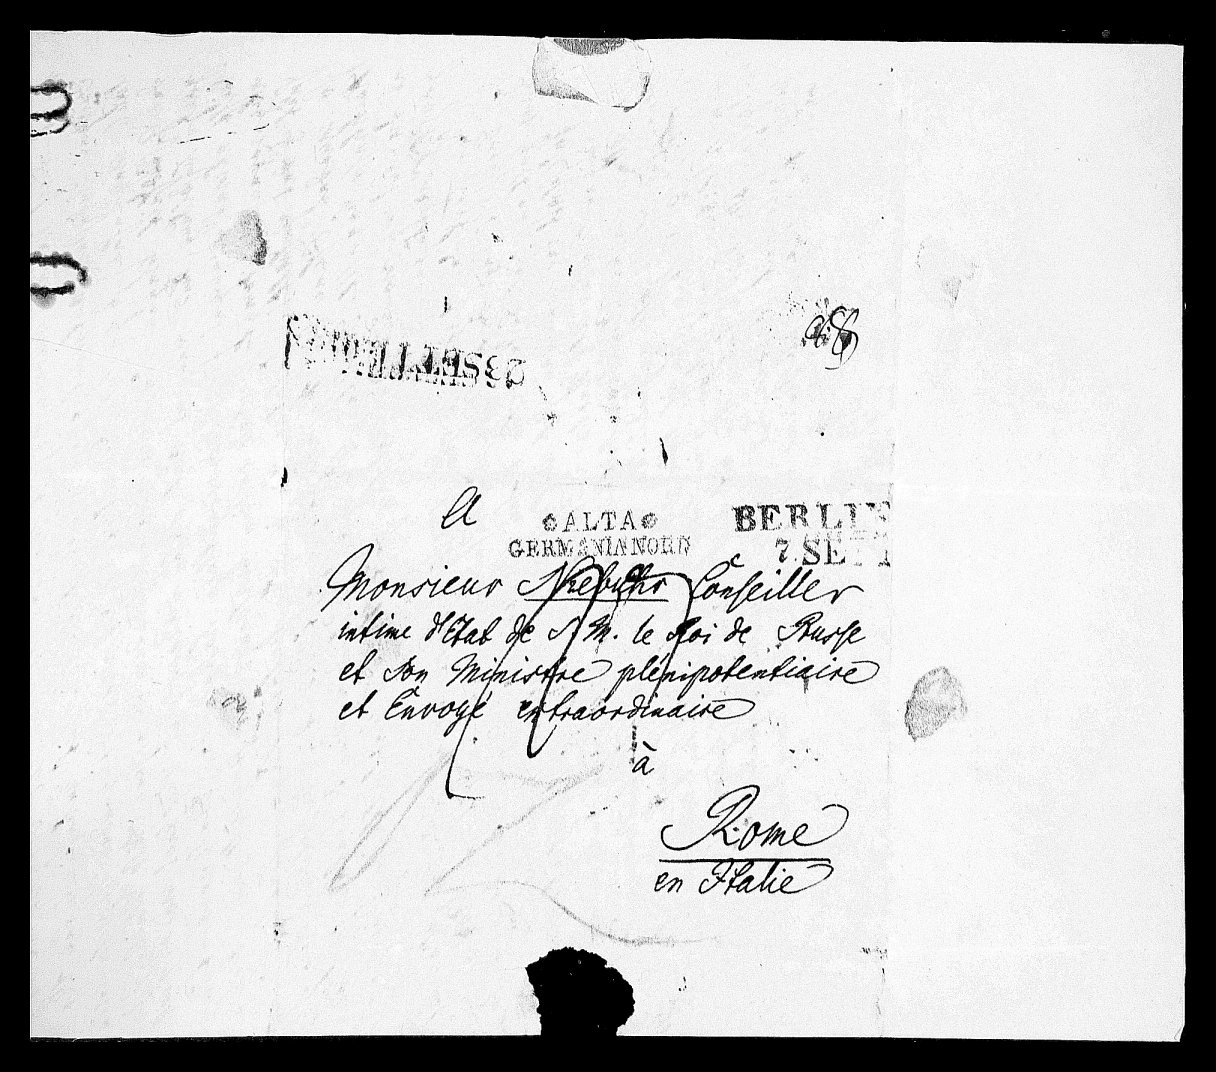 23 SETTEMBRE
A
ALTA
GERMANIA NORD
BERLIN
7. SEPT
Monsieur Niebuhr Conseiller
intime d'Etat de S. M. le Roi de Prusse
et son Ministre plénipotentiaire
et Envoyé extraordinaire
à
Rome
en Italie